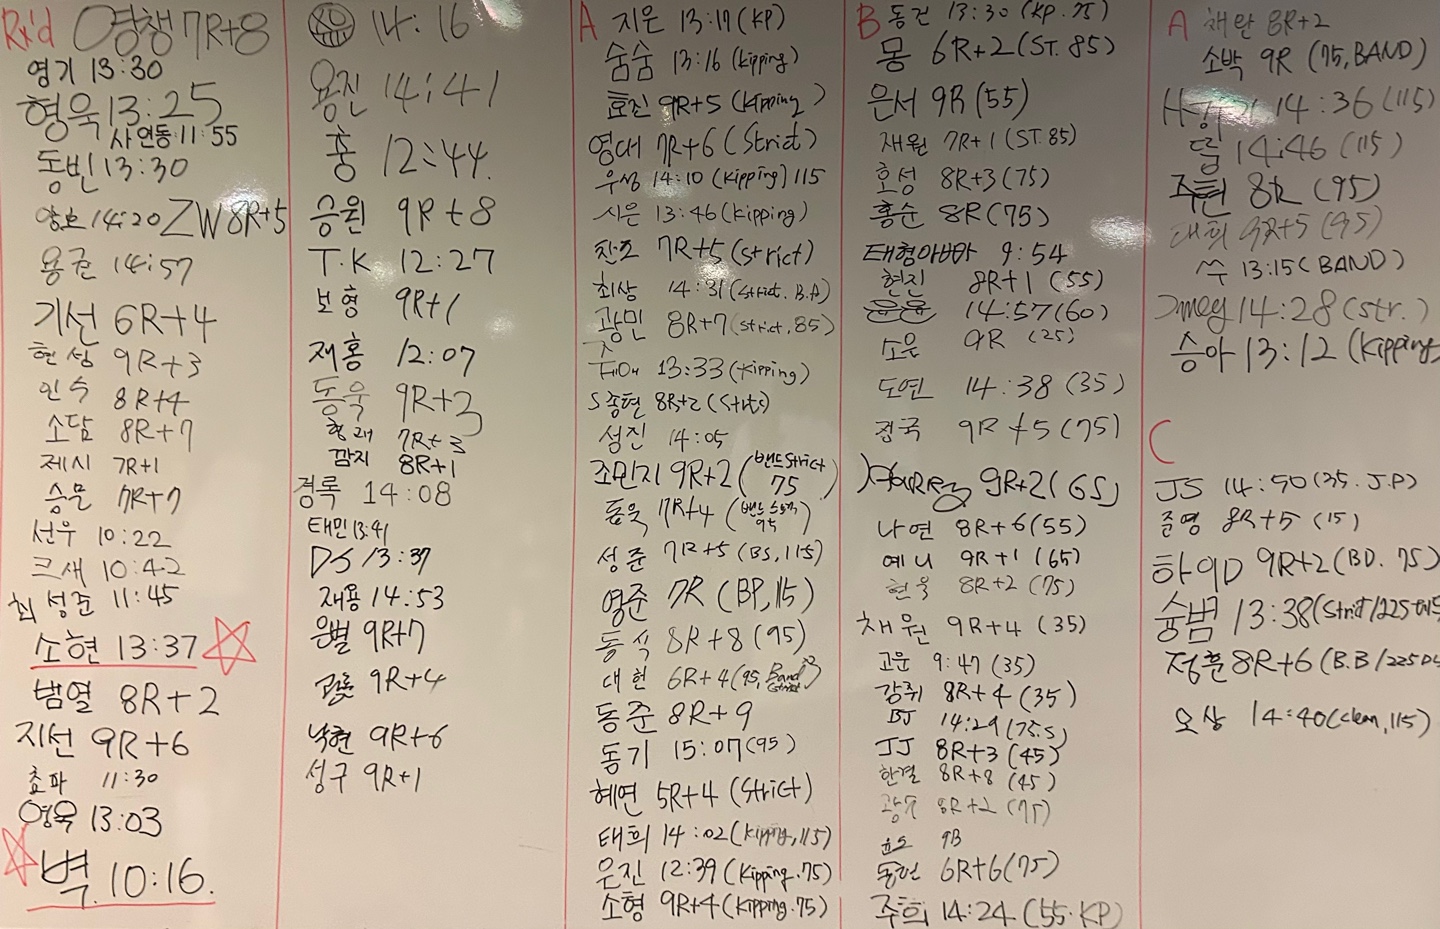 Rx'd 영챙 7R+8
영기 13:30
형욱 13:25
사연동 11:55
동빈 13:30
양호 14:20 ZW 8R+5
용근 14:57
기선 6R+4
현성 9R+3
인수 8R+4
소담 8R+7
제시 7R+1
승문 7R+7
선우 10:22
크새 10:42
최성준 11:45
소현 13:37
범열 8R+2
지선 9R+6
초파 11:30
영욱 13:03
벽. 10:16.
14:16
용진 14:41
홍 12:44.
승원 9R+8
T.K 12:27
보영 9R+1
재홍 12:07
동욱 9R+3
형래 7R+3
깜지 8R+1
경록 14:08
태민 13:41
DS 13:37
재용 14:53
은별 9R+7
9R+4
낙현 9R+6
성구 9R+1
A 지은 13:17 (KP)
숨숨 13:16 (Kipping)
효진 9R+5 (Kipping)
영대 7R+6 (Strict)
우성 14:10 (Kipping) 115
시은 13:46 (Kipping)
찬호 7R+5 (Strict)
최상 14:31 (Strict. B.A)
광민 8R+7 (strict, 85)
13:33 (Kipping)
S종현 8R+2
성진 14:05
조민지 9R+2 (밴드 Strict 75)
동욱 7R+4
성준 7R+5 (BS, 115)
영준 7R (BP, 115)
동석 8R+8 (95)
대현 6R+4 (95, Band Strict)
동준 8R+9
동기 15:07 (95)
혜연 5R+4 (Strict)
태희 14:02 (Kipping, 115)
은진 12:39 (Kipping. 75)
소형 9R+4 (Kipping. 75)
B 동건 13:30 (KP. 75)
몽 6R+2 (ST. 85)
은서 9R (55)
재원 7R+1 (ST. 85)
호성 8R+3 (75)
홍순 8R (75)
태형아빠 9:54
현진 8R+1 (55)
14:57 (60)
소윤 9R (25)
도연 14:38 (35)
정국 9R+5 (75)
9R+2 (65)
나연 8R+6 (55)
예니 9R+1 (65)
현욱 8R+2 (75)
채원 9R+4 (35)
고운 9:47 (35)
감쥐 8R+4 (35)
BJ 14:29 (75.S)
JJ 8R+3 (45)
한결 8R+8 (45)
8R+2 (75)
6R+6 (75)
주희 14:24 (55. KP)
A 채란 8R+2
소박 9R (75, BAND)
14:36 (115)
14:46 (115)
주현 8R (95)
대희 9R+5 (95)
쑤 13:15 (BAND)
14:28 (Str.)
승아 13:12 (Kipping)
C
JS 14:50 (35. J.P)
준영 8R+5 (15)
하이D 9R+2 (BD. 75)
숭범 13:38
정훈 8R+6
오상 14:40 (clean, 115)